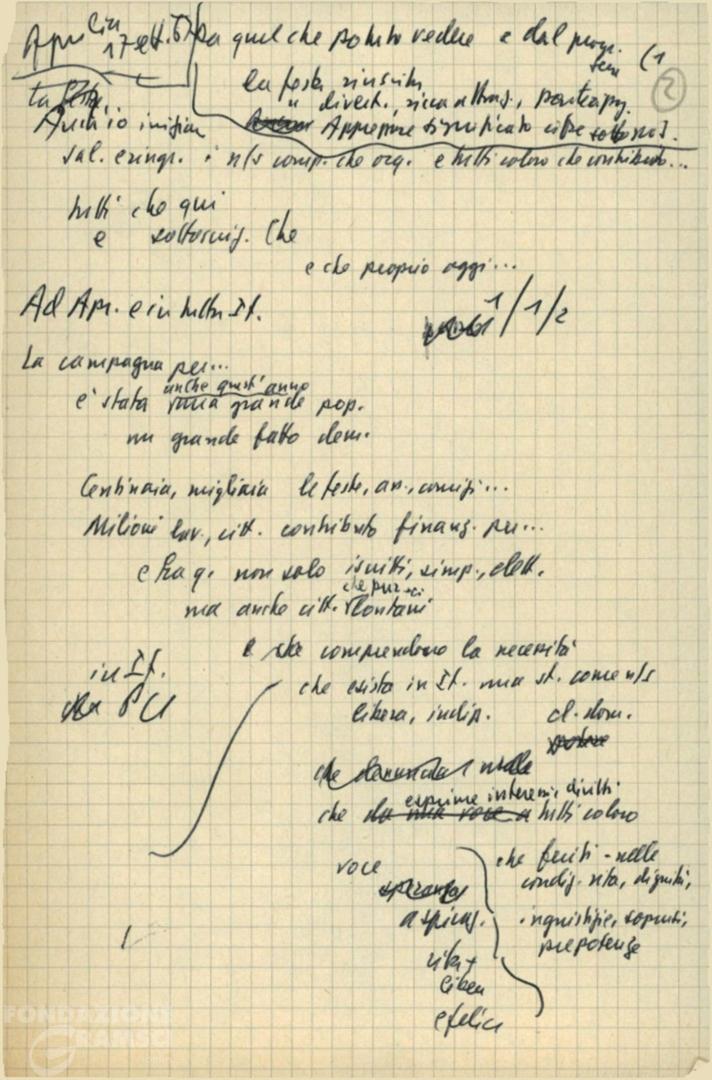 Aprilia
17 sett. 67
Da quel che potuto vedere e dal progr.
(1
2
la festa riuscita,
divert., ricca attraz., partecip.
Anch'io iniziare
Apprezzare significato
sal. e ringr. i n/s comp. che org. e tutti coloro che contribuito...
tutti che qui
e sottoscriz. che
e che proprio oggi...
Ad Apr. e in tutta It.
1/1/2
La campagna per...
anche quest'anno
è stata una grande pop.
un grande fatto dem.
Centinaia, migliaia le feste, comizi...
Milioni lav., citt. contributo finanz. per...
e fra q. non solo iscritti, simp., elett.
che pur
ma anche citt. lontani
e che comprendono la necessità
in It.
PCI
che esista in It. una st. come n/s
libera, indip.
che
esprime interessi, diritti
che da una voce a tutti coloro
voce
speranza
aspiraz.
che feriti - nelle
condiz. vita, dignità,
ingiustizie, soprusi,
prepotenze
vita +
libera
e felice
FONDAZIONE
GRAMSCI